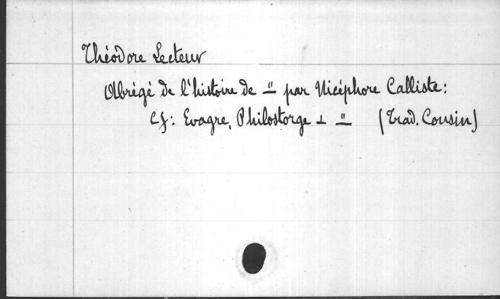 Théodore Lecteur
Abrégé de l'histoire de —"— par Nicéphore Calliste:
cf: Evagre, Philostorge + —"— (Trad. Cousin)